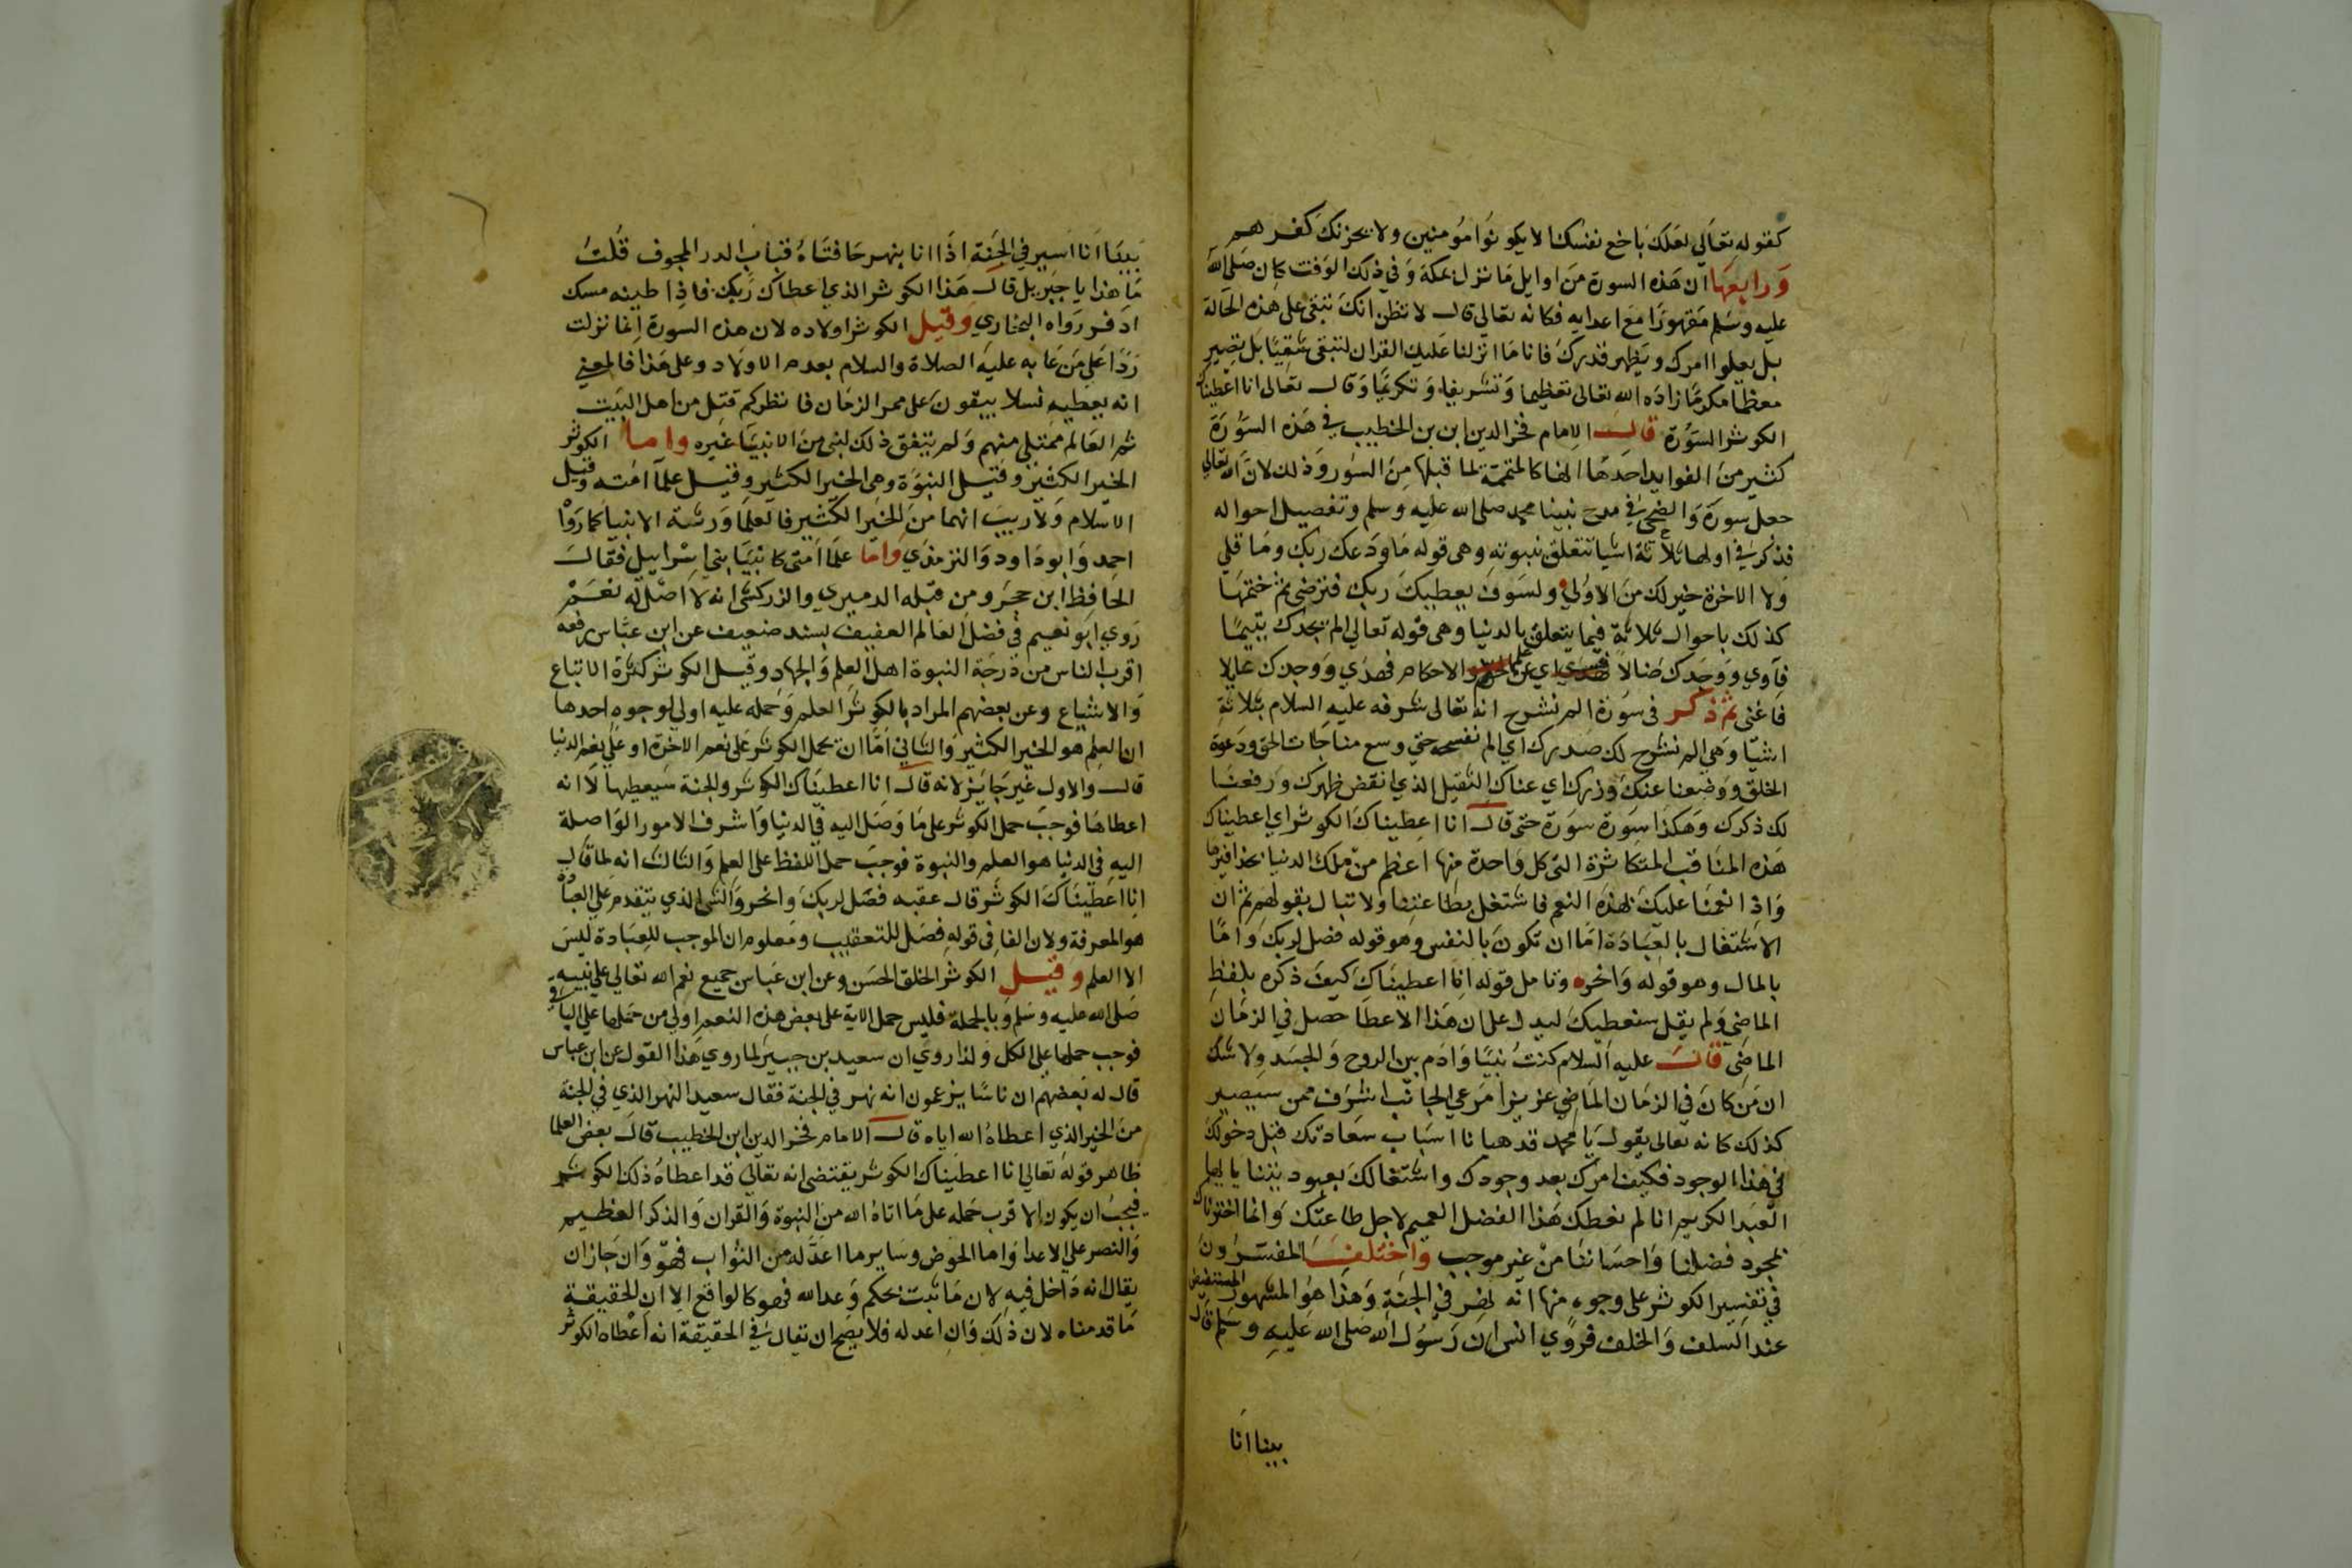 كقوله تعالى لعلك باخع نفسك الا يكونوا مومنين ولا يحزنك كفرهم
ورابعها ان هذه السورة من اوايل ما نزل بمكة وفي ذلك الوقت كان صلى الله
عليه وسلم مقهورا مع اعدايه فكانه تعالى قال لا تظن انك تبقى على هذه الحالة
بل يعلوا امرك ويظهر قدرك فانا ما انزلنا عليك القران لتبقى شقيا بل تصير
معظما مكرما زاده الله تعالى تعظيما وتشريفا وتكريما وقال تعالى انا اعطيناك
الكوثر السورة قال الامام فخر الدين ابن بن الخطيب في هذه السورة
كثير من الفوايد احدها انها كالمتممة لما قبلها من السور وذلك لان الله تعالى
جعل سورة والضحى في مدح نبينا محمد صلى الله عليه وسلم وتفصيل احواله
فذكر في اولها ثلاثة اشيا تتعلق بنبوته وهى قوله ما ودعك ربك وما قلي
ولا الاخرة خير لك من الاولي ولسوف يعطيك ربك فترضى ثم ختمها
كذلك باحوال ثلاثة فيما يتعلق بالدنيا وهى قوله تعالي الم يجدك يتيما
فآوي ووجدك ضالا اي عن علم والاحكام فهدي ووجدك عايلا
فاغنى ثم ذكر في سورة الم نشرح انه تعالى شرفه عليه السلام بثلاثة
اشيا وهي الم نشرح لك صدرك اي الم نفسحه حتي وسع مناجات الحق ودعوة
الخلق ووضعنا عنك وزرك اي عناك الثقيل الذي انقض ظهرك ورفعنا
لك ذكرك وهكذا سورة سورة حتى قال انا اعطيناك الكوثر اي اعطيناك
هذه المناقب المتكاثرة التي كل واحدة منها اعظم من ملك الدنيا بحذافيرها
واذا انعمنا عليك بهذه النعم فاشتغل بطاعتنا ولا تبال بقولهم ثم ان
الاشتغال بالعبادة اما ان تكون بالنفس وهو قوله فصل لربك واما
بالمال وهو قوله وانحر وتامل قوله انا اعطيناك كيف ذكره بلفظ
الماضي ولم يقل سنعطيك ليدل على ان هذا الاعطا حصل في الزمان
الماضى قال عليه السلام كنت نبيا وادم بين الروح والجسد ولا شك
ان من كان في الزمان الماضي عزيزا مرعي الجانب اشرف ممن سيصير
كذلك كانه تعالى يقول يا محمد قد هيانا اسباب سعادتك قبل دخولك
في هذا الوجود فكيف امرك بعد وجودك واشتغالك بعبوديتنا يا ايها
العبد الكريم انا لم نعطك هذا الفضل العميم لاجل طاعتك وانما اخترناك
بمجرد فضلنا واحساننا من غير موجب واختلف المفسرون
في تفسير الكوثر على وجوه منها انه نهر في الجنة وهذا هو المشهور المستفيض
عند السلف والخلف فروي انس ان رسول الله صلى الله عليه وسلم قال
بينا انا
بينا انا اسير في الجنة اذا انا بنهر حافتاه قباب الدر المجوف قلت
ما هذا يا جبريل قال هذا الكوثر الذي اعطاك ربك فاذا طينه مسك
اذفر رواه البخاري وقيل الكوثر اولاده لان هذه السورة انما نزلت
ردا على من عابه عليه الصلاة والسلام بعدم الاولاد وعلى هذا فالمعني
انه يعطيه نسلا يبقون على ممر الزمان فانظركم قتل من اهل البيت
ثم العالم ممتلي منهم ولم يتفق ذلك لنبى من الانبيا غيره واما الكوثر
الخير الكثير وقيل النبوة وهى الخير الكثير وقيل علما امته وقيل
الاسلام ولا ريب انهما من الخير الكثير فالعلما ورثة الانبيا كما رواه
احمد وابو داود والترمذي واما علما امتى كانبيا بنى اسراييل فقال
الحافظ ابن حجر ومن قبله الدميري والزركشى انه لا اصل له نعم
روي ابو نعيم في فضل العالم العفيف بسند ضعيف عن ابن عباس يرفعه
اقرب الناس من درجة النبوة اهل العلم والجهاد وقيل الكوثر كثرة الاتباع
والاشياع وعن بعضهم المراد بالكوثر العلم وحمله عليه اولي لوجوه احدها
ان العلم هو الخير الكثير والثاني اما ان يحمل الكوثر على نعم الاخرة او على نعم الدنيا
قال والاول غير جايز لانه قال انا اعطيناك الكوثر والجنة سيعطيها لا انه
اعطاها فوجب حمل الكوثر على ما وصل اليه في الدنيا واشرف الامور الواصلة
اليه في الدنيا هو العلم والنبوة فوجب حمل اللفظ على العلم والثالث انه لما قال
انا اعطيناك الكوثر قال عقبه فصل لربك وانحر والشى الذي يتقدم علي العبادة
هو المعرفة ولان الفا في قوله فصل للتعقيب ومعلوم ان الموجب للعبادة ليس
الا العلم وقيل الكوثر الخلق الحسن وعن ابن عباس جميع نعم الله تعالي علي نبيه
صلى الله عليه وسلم وبالجملة فليس حمل الاية على بعض هذه النعم اولي من حملها علي الباقي
فوجب حملها على الكل ولذا روي ان سعيد بن جبير لما روي هذا القول عن ابن عباس
قال له بعضهم ان ناسا يزعمون انه نهر في الجنة فقال سعيد النهر الذي في الجنة
من الخير الذي اعطاه الله اياه قال الامام فخر الدين ابن الخطيب قال بعض العلما
ظاهر قوله تعالي انا اعطيناك الكوثر يقتضى انه تعالي قد اعطاه ذلك الكوثر
فيجب ان يكون الاقرب حمله على ما اتاه الله من النبوة والقران والذكر العظيم
والنصر علي الاعدا واما الحوض وساير ما اعد له من الثواب فهو وان جاز ان
يقال انه داخل فيه لان ما ثبت بحكم وعد الله فهو كالواقع الا ان الحقيقة
ما قدمناه لان ذلك وان اعد له فلا يصح ان يقال في الحقيقة انه اعطاه الكوثر